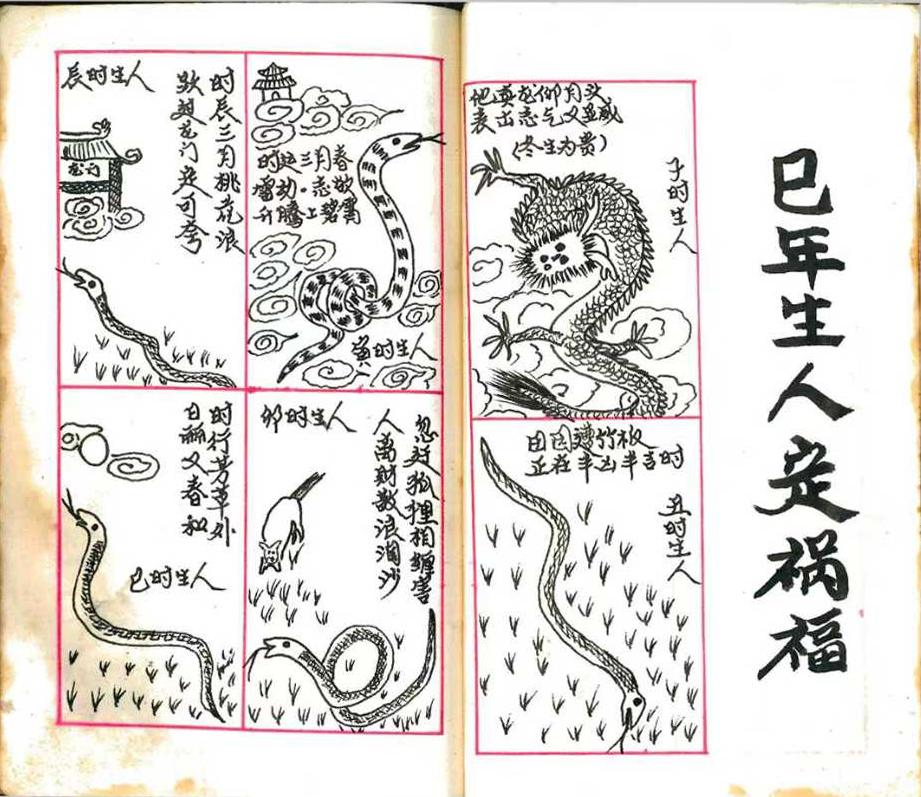 巳年生人定祸福
子时生人
他真龙仰月头
表出志气又显威
(冬生为贵)
丑时生人
田园
正在半凶半吉时
寅时生人
时逢三月春
雷动·志敢
升腾上碧霄
卯时生人
忽逢狐狸相缠害
人离财散浪淘沙
辰时生人
时辰三月桃花浪
跃过龙门定可夸
龙门
巳时生人
时行芳草外
日丽又春和